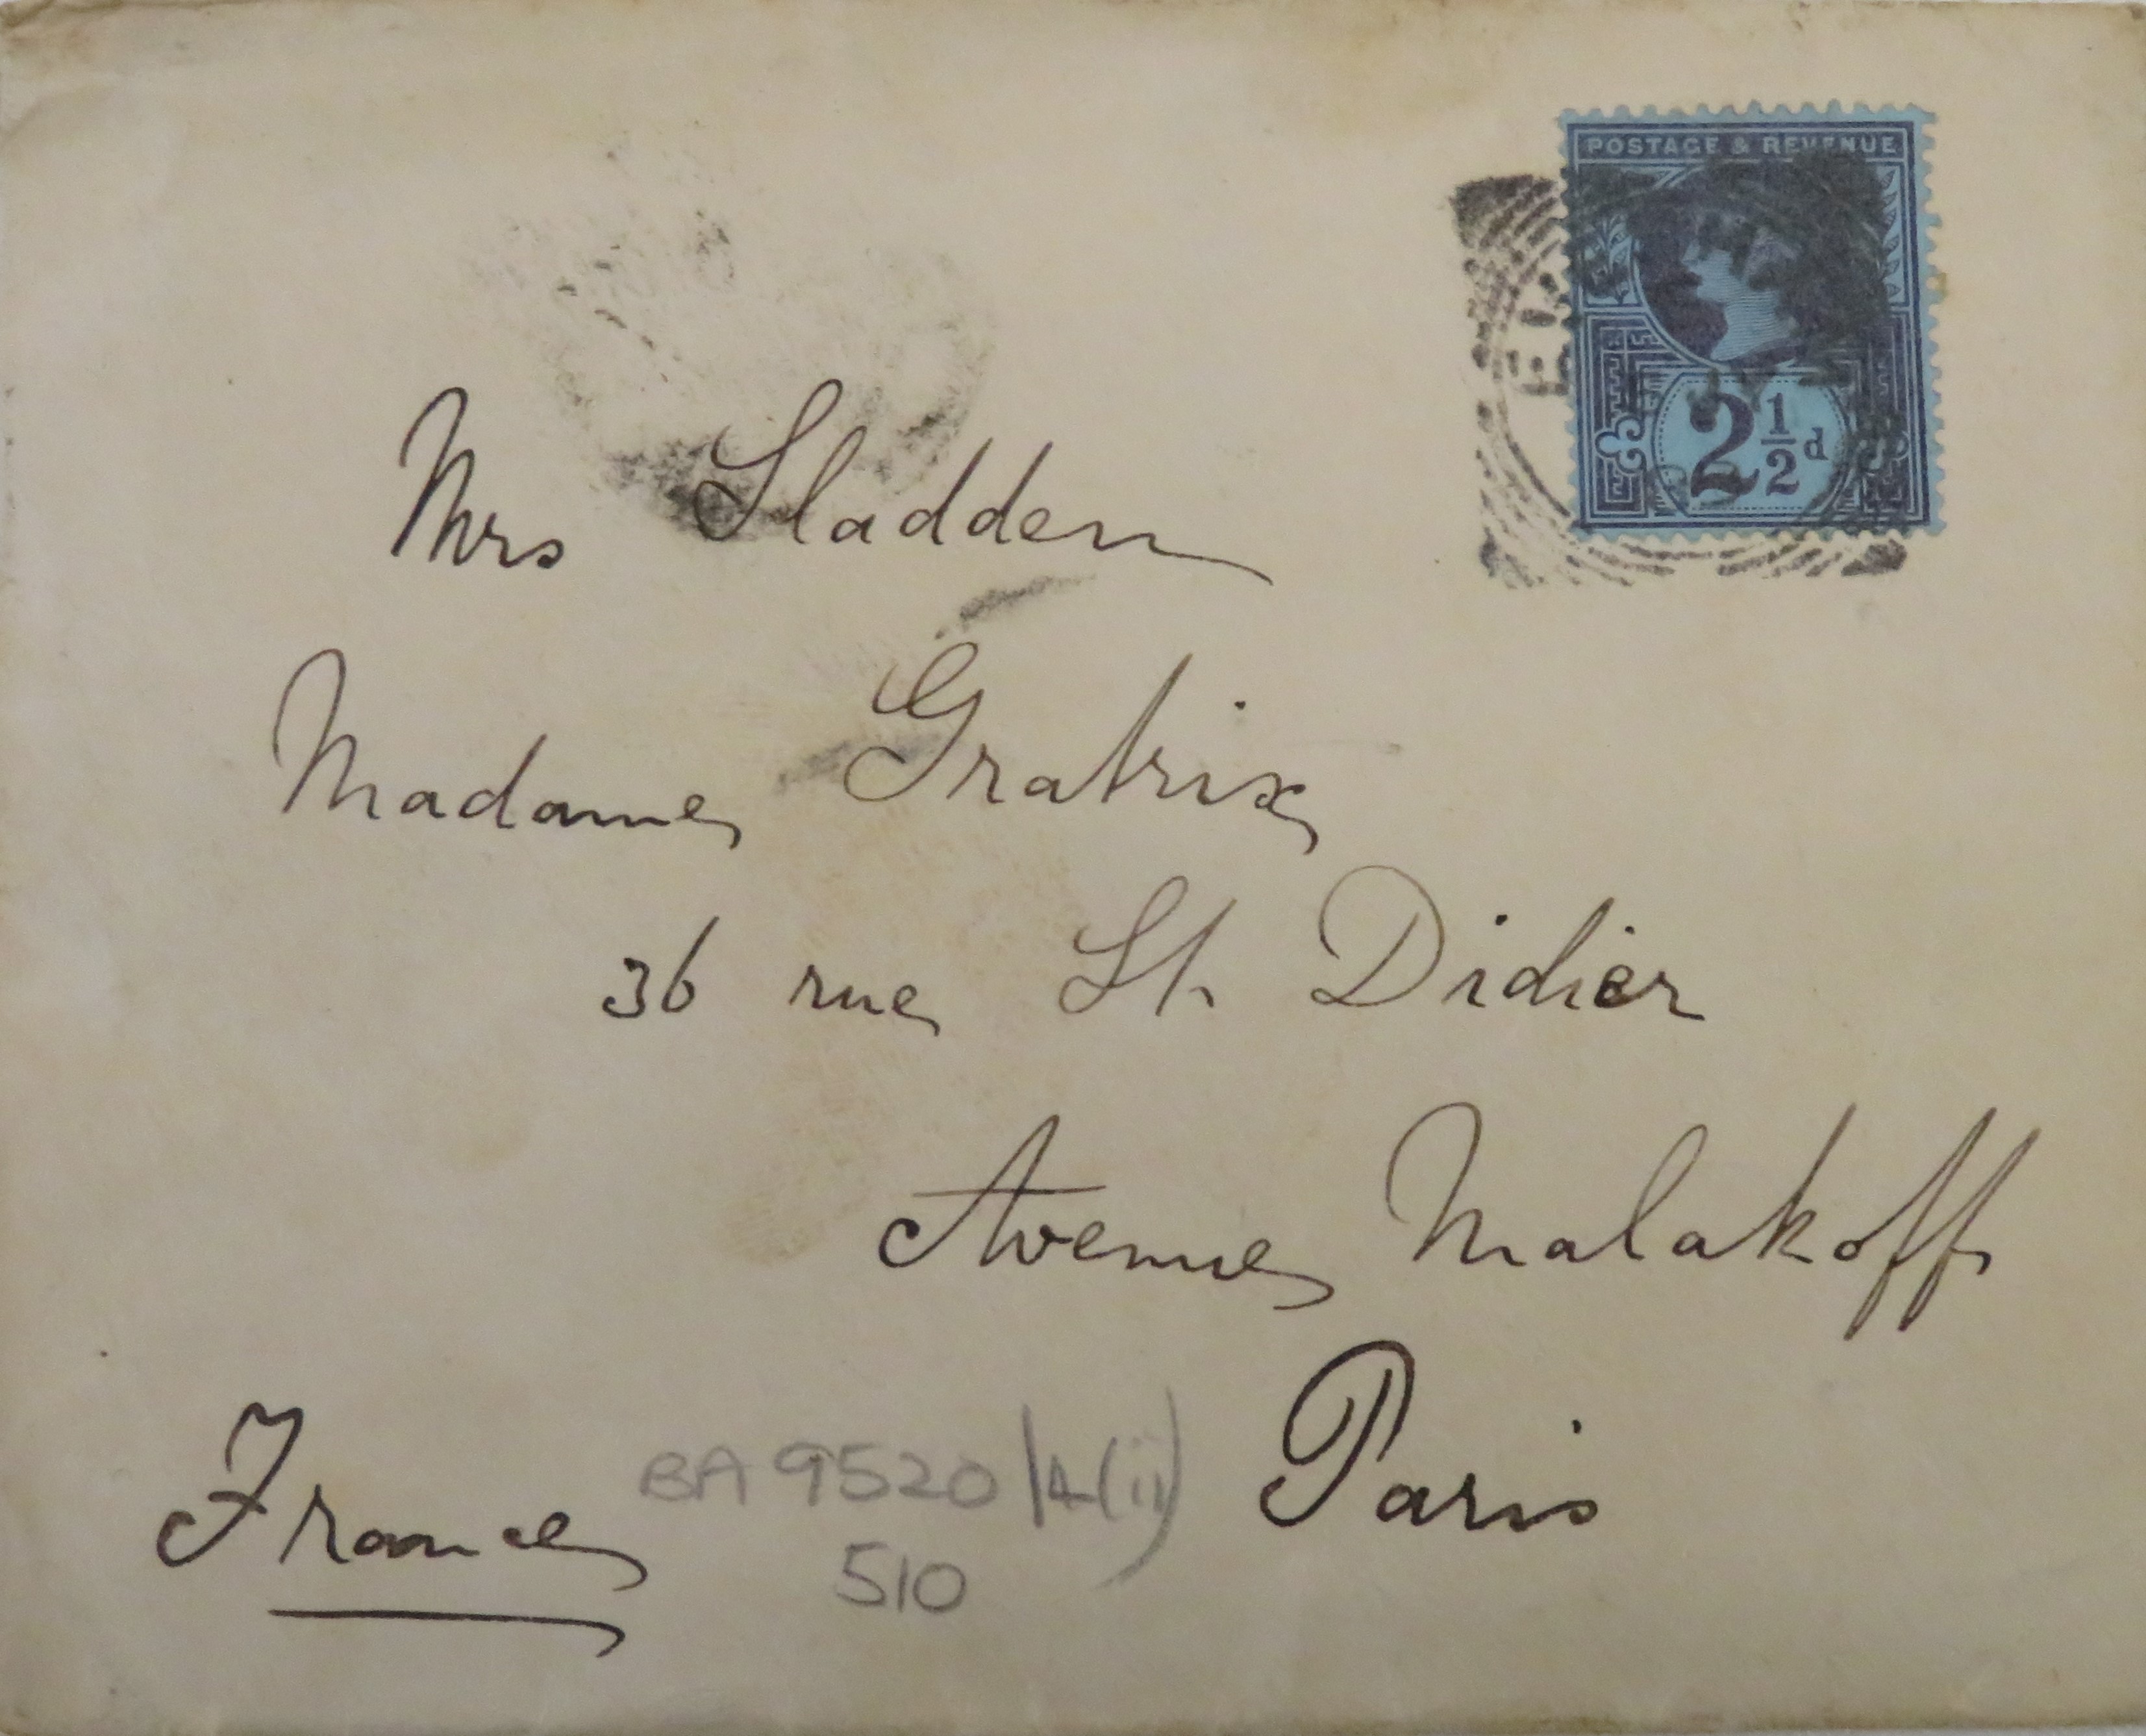 POSTAGE & REVENUE
2 1/2 d
Mrs Sladden
Madame Gratrix
36 rue St. Didier
Avenue Malakoff
Paris
France
BA 9520/4(ii)
510